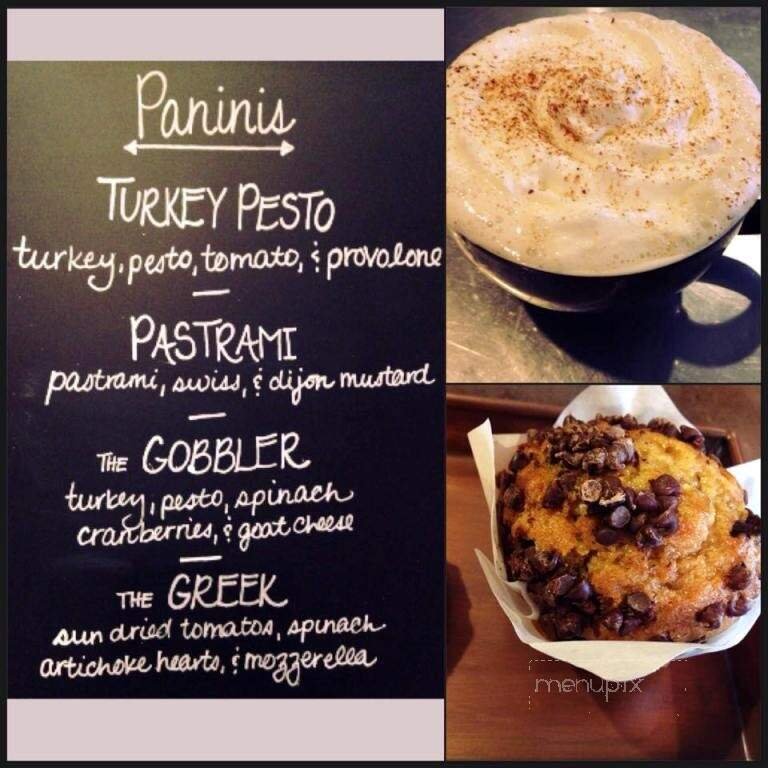 Paninis
TURKEY PESTO
turkey, pesto, tomato, & provolone
PASTRAMI
pastrami, swiss, & dijon mustard
THE GOBBLER
turkey, pesto, spinach
cranberries, & goat cheese
THE GREEK
sun dried tomatos, spinach
artichoke hearts, & mozzerella
menupix